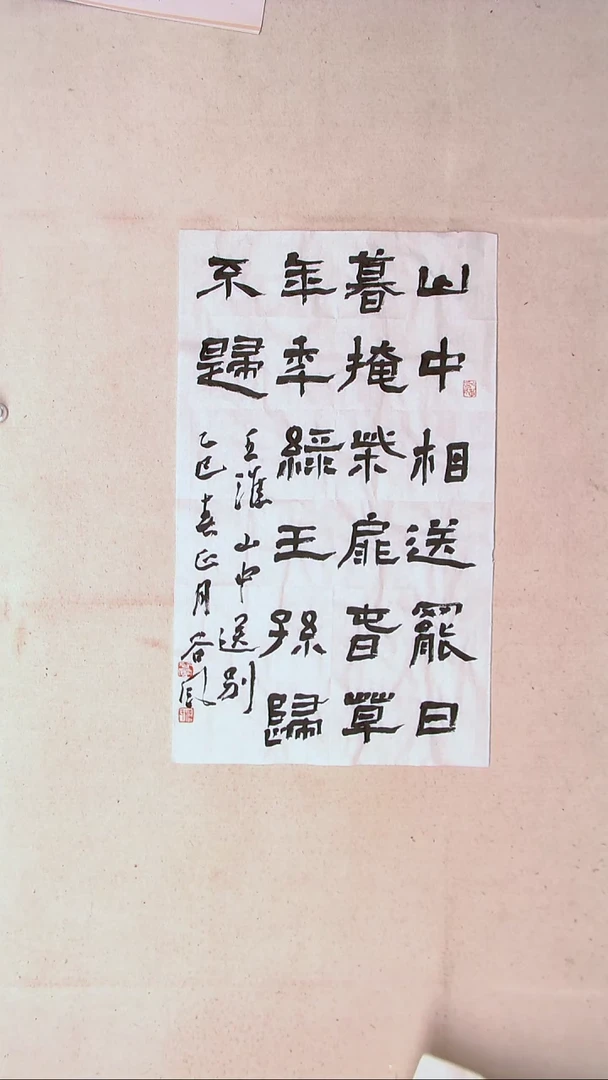 山中相送罷日
暮掩柴扉春草
年秊綠王孫歸
不歸
王維山中送别
乙巳春正月